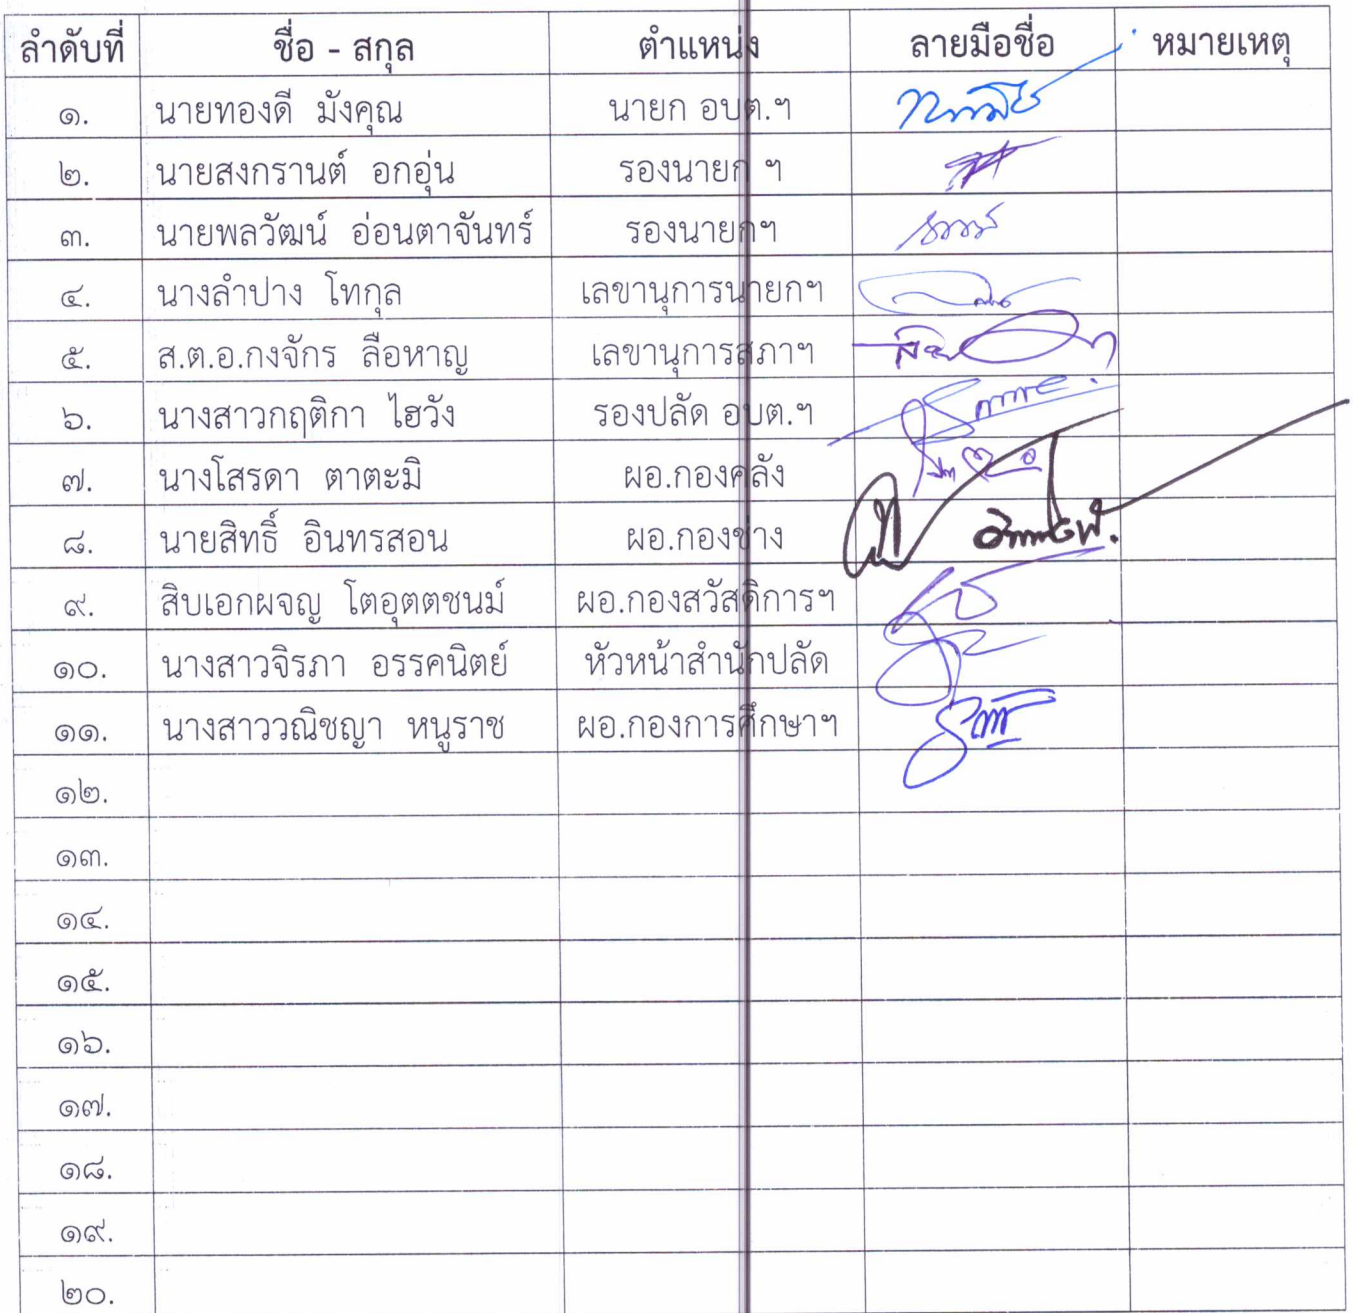 ลำดับที่ ชื่อ - สกุล ตำแหน่ง ลายมือชื่อ หมายเหตุ
๑. นายทองดี มังคุณ นายก อบต.ฯ
๒. นายสงกรานต์ อกอุ่น รองนายก ฯ
๓. นายพลวัฒน์ อ่อนตาจันทร์ รองนายกฯ
๔. นางลำปาง โทกุล เลขานุการนายกฯ
๕. ส.ต.อ.กงจักร ลือหาญ เลขานุการสภาฯ
๖. นางสาวกฤติกา ไฮวัง รองปลัด อบต.ฯ
๗. นางโสรดา ตาตะมิ ผอ.กองคลัง
๘. นายสิทธิ์ อินทรสอน ผอ.กองช่าง
๙. สิบเอกผจญ โตอุตตชนม์ ผอ.กองสวัสดิการฯ
๑๐. นางสาวจิรภา อรรคนิตย์ หัวหน้าสำนักปลัด
๑๑. นางสาววณิชญา หนูราช ผอ.กองการศึกษาฯ
๑๒.
๑๓.
๑๔.
๑๕.
๑๖.
๑๗.
๑๘.
๑๙.
๒๐.